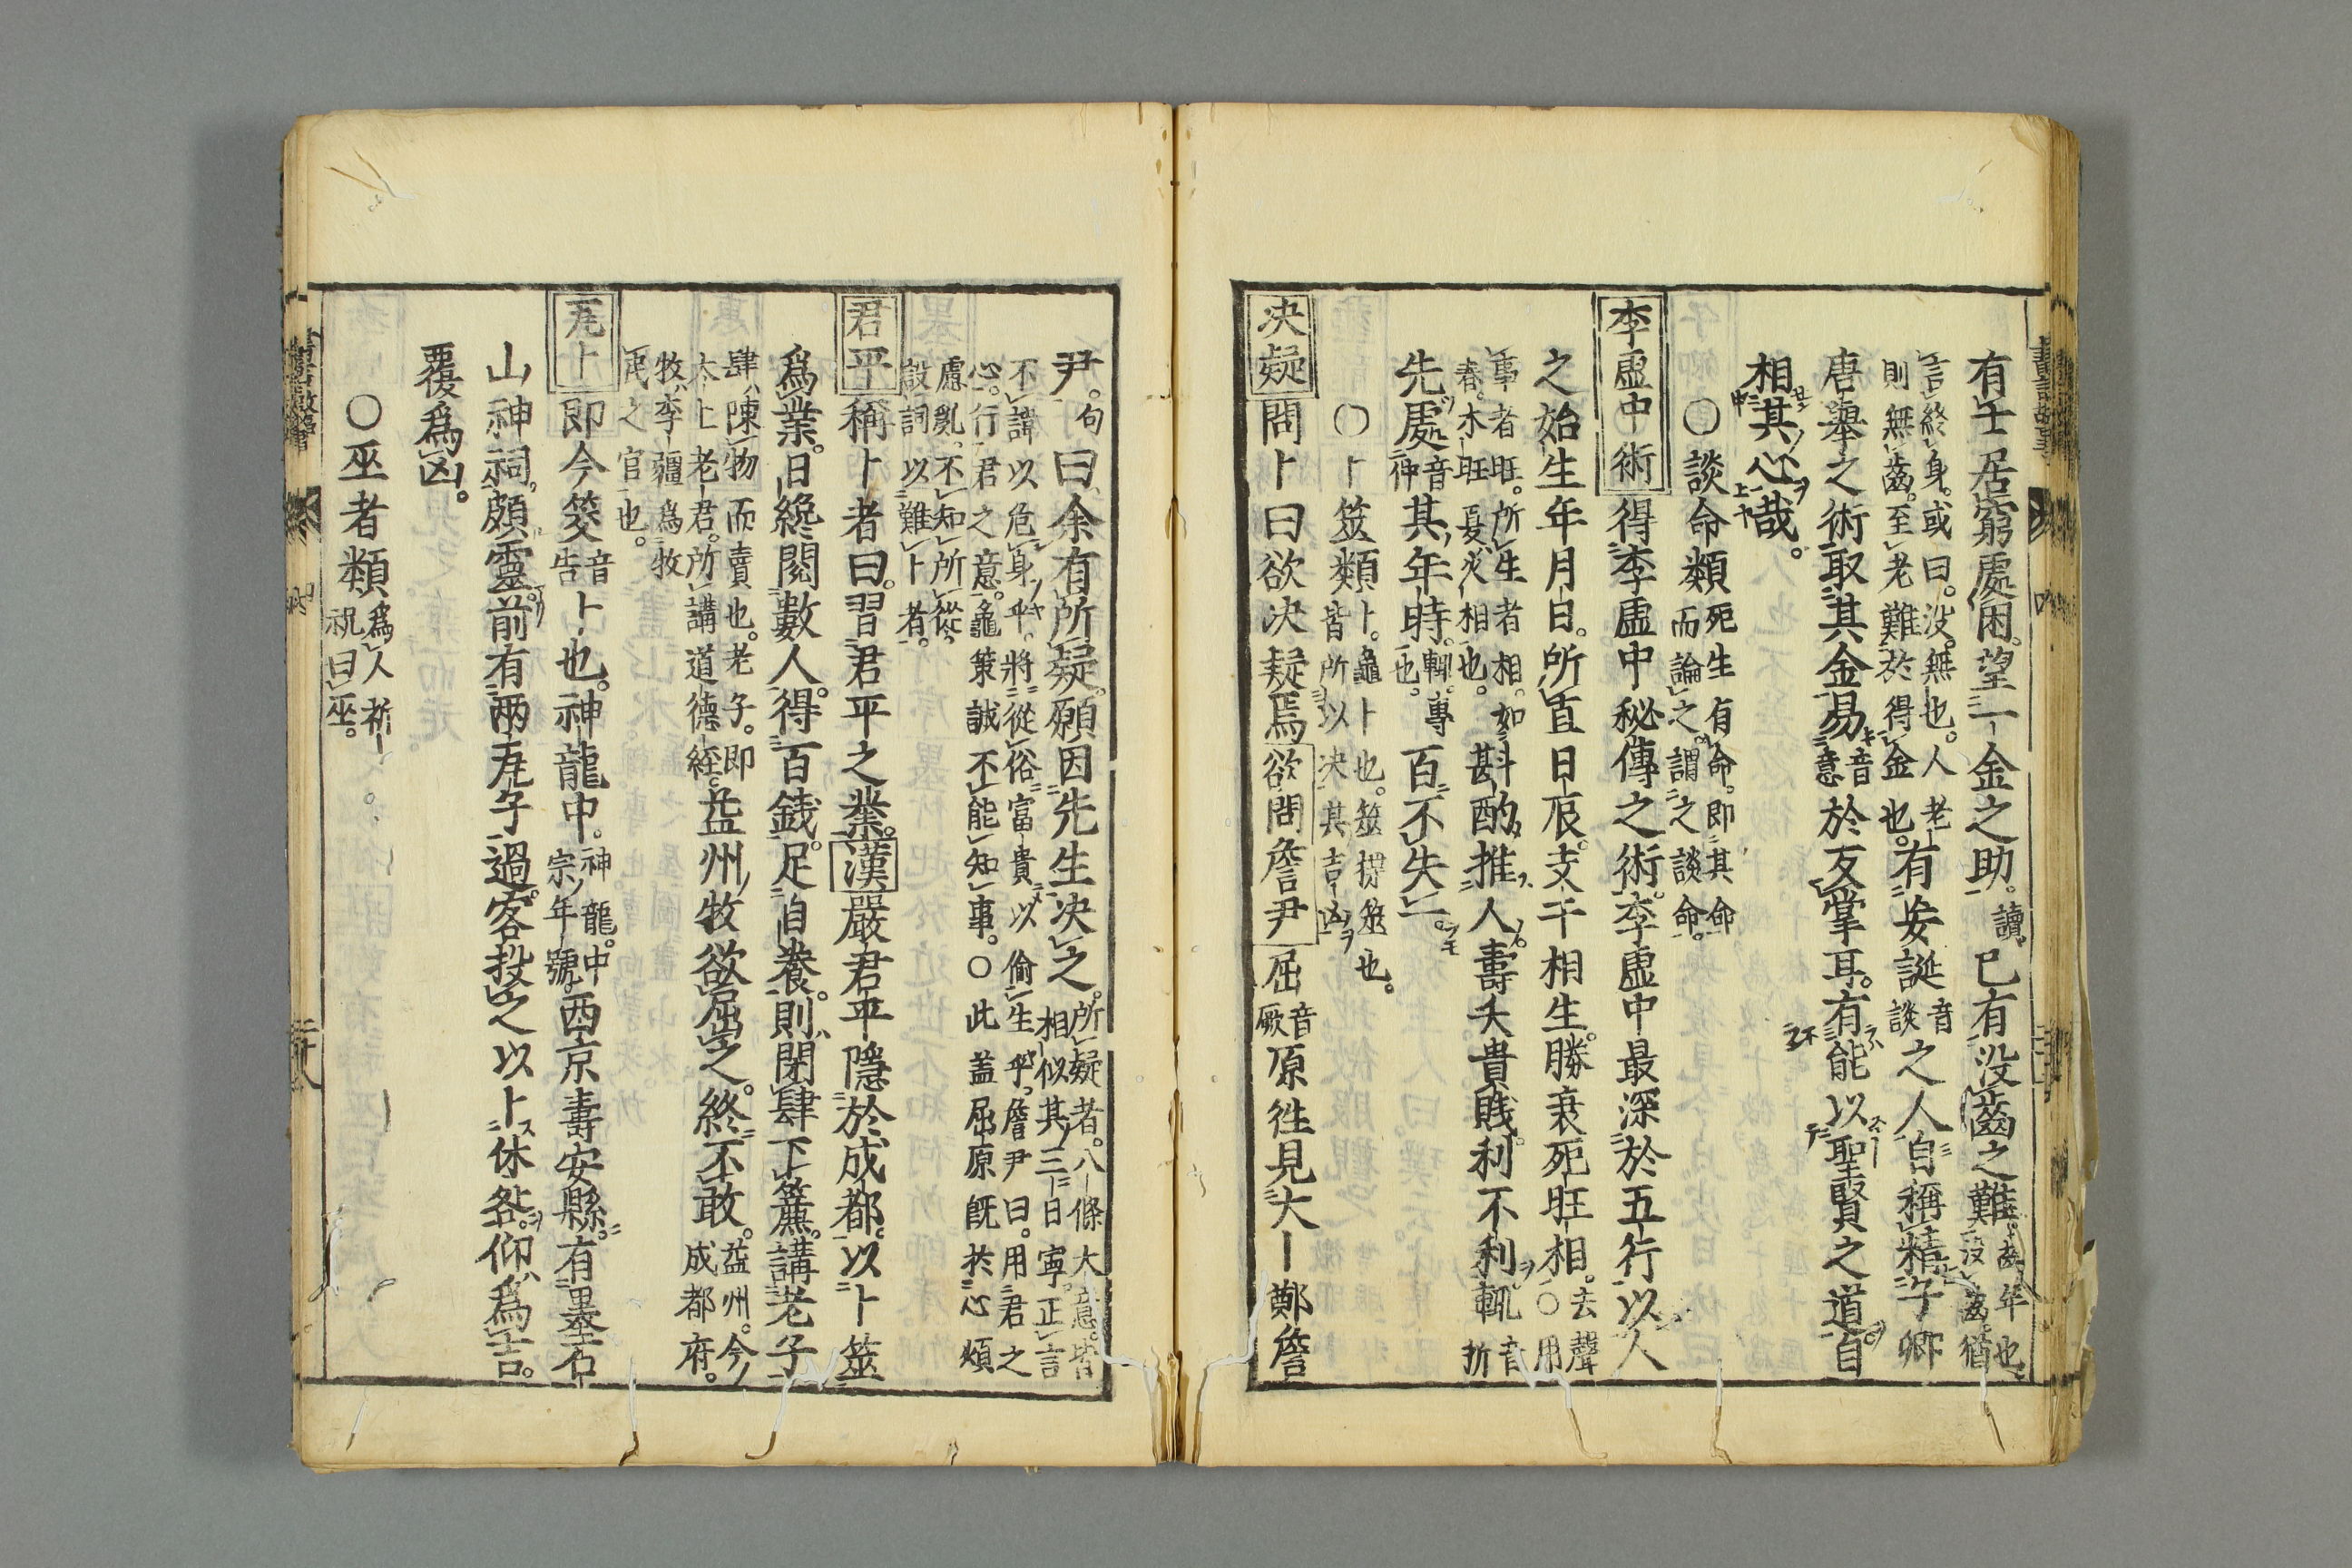 有士居窮處困。望一金之助。讀。已有沒齒之難。齒年也。沒齒。猶
言終身。或曰。沒。無也。人老
則無齒。至老難於得金也。有安誕音談之人自稱精子卿
唐舉之術取其金易音意於反掌耳。有能以聖賢之道自
相其心哉。
○談命類死生有命。即其命
而論之。謂之談命。
李虛中術得李虛中秘傳之術。李虛中最深於五行以人
之始生年月日。所直日辰。支干相生。勝衰死旺相。去聲○用
事者旺。所生者相。如
春。木旺夏火相也。斟酌推人壽夭貴賤。利不利。輒音折
先處音仲其年時。輒。專也。百不失一。
○卜筮類卜。龜卜也。筮揲筮也。
皆所以决其吉凶
决疑問卜曰欲决疑焉欲問詹尹屈音厥原往見大卜鄭詹
尹。句曰余有所疑。願因先生决之。所疑者。八條大意。皆
相似其三曰寧。正言
不諱以危身乎。將從俗富貴以偷生乎。詹尹曰。用君之
心。行君之意。龜策誠不能知事。○此蓋屈原既於心煩
慮亂。不知所從。
設詞以難卜者。
君平稱卜者曰。習君平之業。漢嚴君平隱於成都。以卜筮
爲業。日纔閱數人。得百錢。足自養。則閉肆下簾。講老子
肆。陳物而賣也。老子。即
太上老君。所講道德經。益州牧欲屈之。終不敢。益州。今
成都府。
牧。李疆爲牧
民之官也。
瓦卜即今筊音告卜也。神龍中。神龍。中宗年號。西京壽安縣。有墨石
山神祠。頗靈。前有兩瓦子過客投之以卜休咎。仰爲吉。
覆爲凶。
○巫者類爲人祈
祝曰巫。